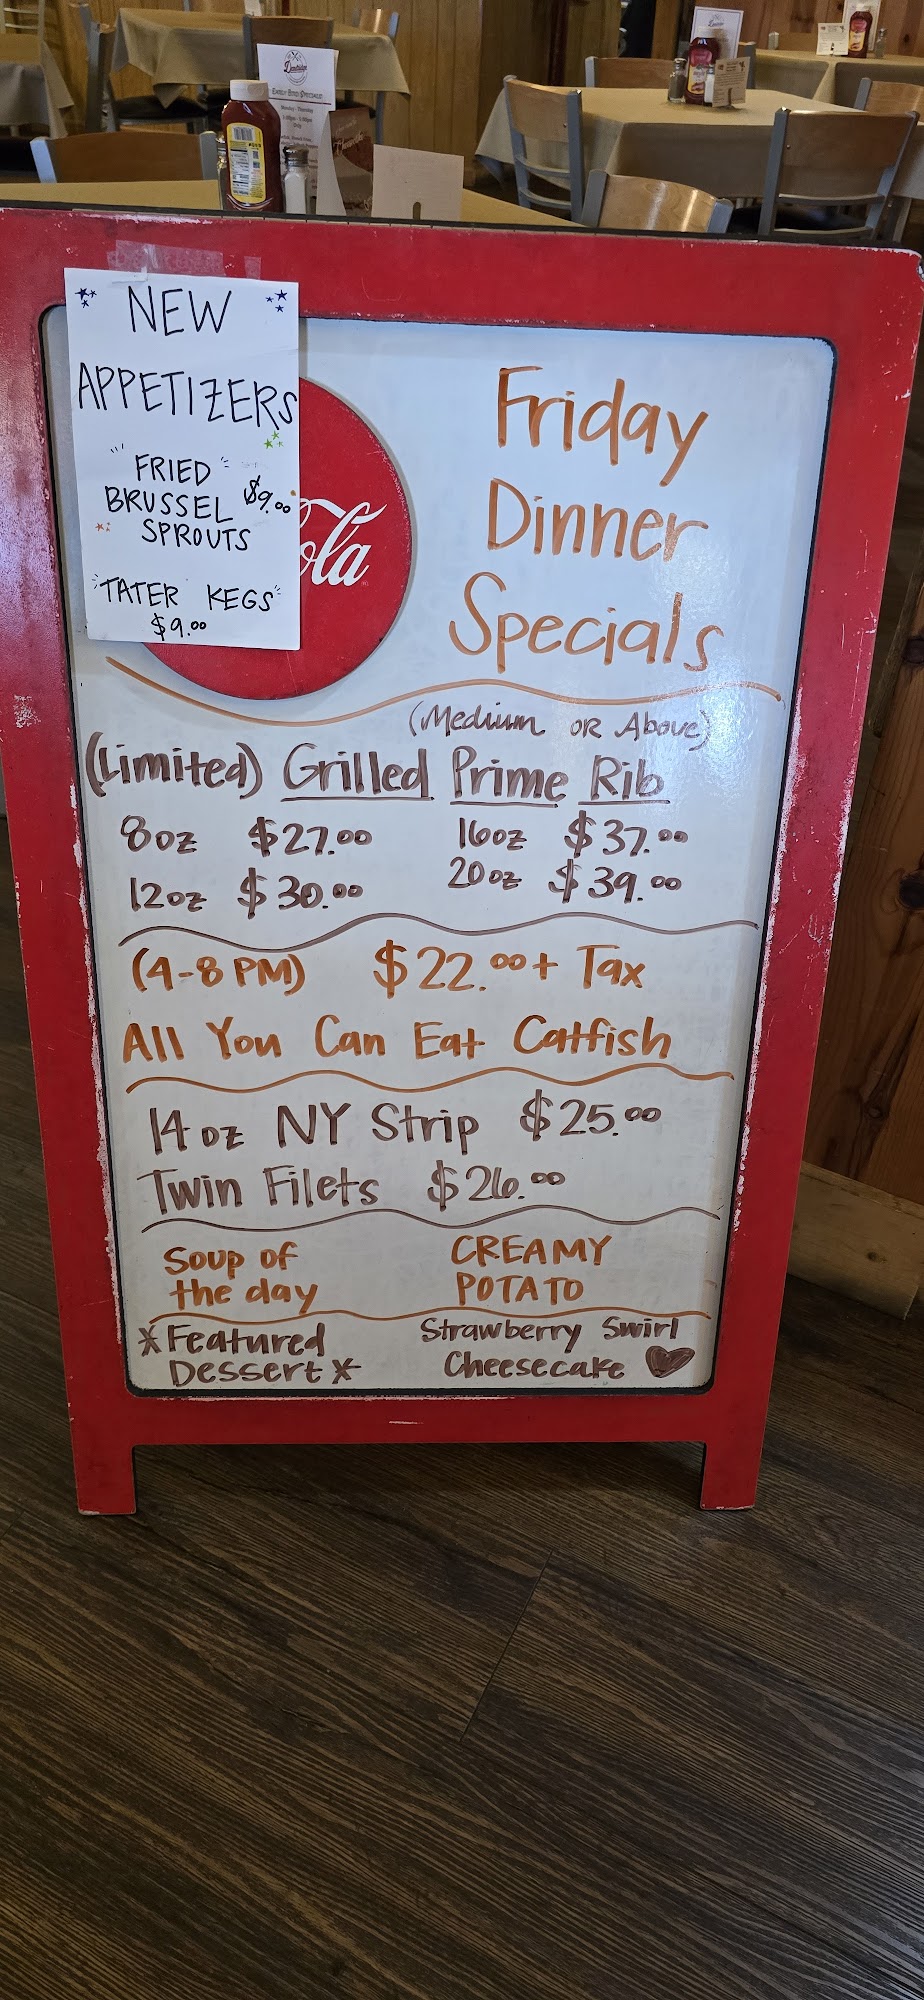 EARLY BIRD SPECIALS
NEW
APPETIZERS
FRIED
BRUSSEL $9.00
SPROUTS
TATER KEGS
$9.00
Cola
Friday
Dinner
Specials
(Medium OR Above)
(Limited) Grilled Prime Rib
8oz $27.00 16oz $37.00
12oz $30.00 20oz $39.00
(4-8 PM) $22.00 + Tax
All You Can Eat Catfish
14oz NY Strip $25.00
Twin Filets $26.00
Soup of CREAMY
the day POTATO
*Featured Strawberry Swirl
Dessert* Cheesecake